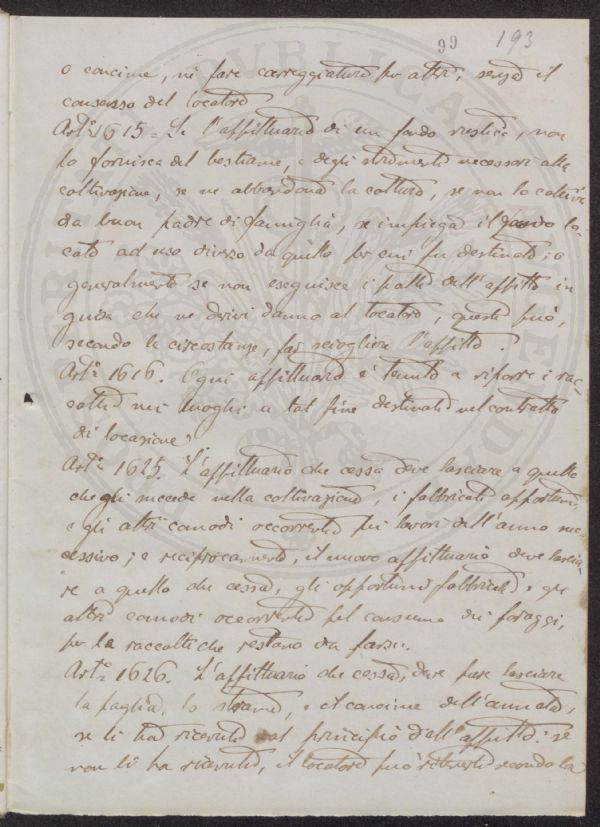 99 193
o concime, nè fare carreggiature per altri, senza il
consenso del locatore
Art.º 1615 = Se l'affittuario di un fondo rustico, non
lo fornisce del bestiame, e degli strumenti necessari alla
coltivazione, se ne abbandona la coltura, se non lo coltiva
da buon padre di famiglia, se impiega il fondo lo-
cato ad uso diverso da quello per cui fu destinato; o
generalmente se non eseguisce i patti dell'affitto in
guisa che ne derivi danno al locatore, questi può,
secondo le circostanze, far sciogliere l'affitto.
Art.º 1616. Ogni affittuario è tenuto a riporre i rac-
colti nei luoghi a tal fine destinati nel contratto
di locazione
Art.º 1625. L'affittuario che cessa deve lasciare a quello
che gli succede nella coltivazione, i fabbricati opportuni,
e gli altri comodi occorrenti pei lavori dell'anno suc
cessivo; e reciprocamente, il nuovo affittuario deve lascia-
re a quello che cessa, gli opportuni fabbricati e gli
altri comodi occorrenti pel consumo dei foraggi,
per le raccolte che restano da farsi.
Art.º 1626. L'affittuario che cessa, deve pure lasciare
la paglia, lo strame, e il concime dell'annata,
se li ha ricevuti al principio dell'affitto: se
non li ha ricevuti, il locatore può ritenerli secondo la